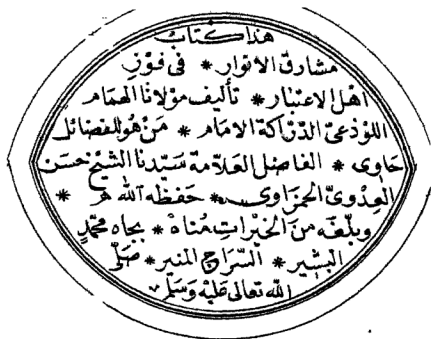 هذا كتاب
مشارق الانوار * فى فوز
اهل الاعتبار * تأليف مولانا الهمام
اللوذعىّ الدّرّاكة الامام * من هو للفضائل
حاوى * الفاضل العلّامة سيّدنا الشيخ حسن
العدوىّ الحمزاوى * حفظه الله *
وبلّغه من الخيرات مُناهْ * بجاه محمّدٍ
البشير * السّراج المنير * صَلّى
الله تعالى عَليْه وَسَلّم